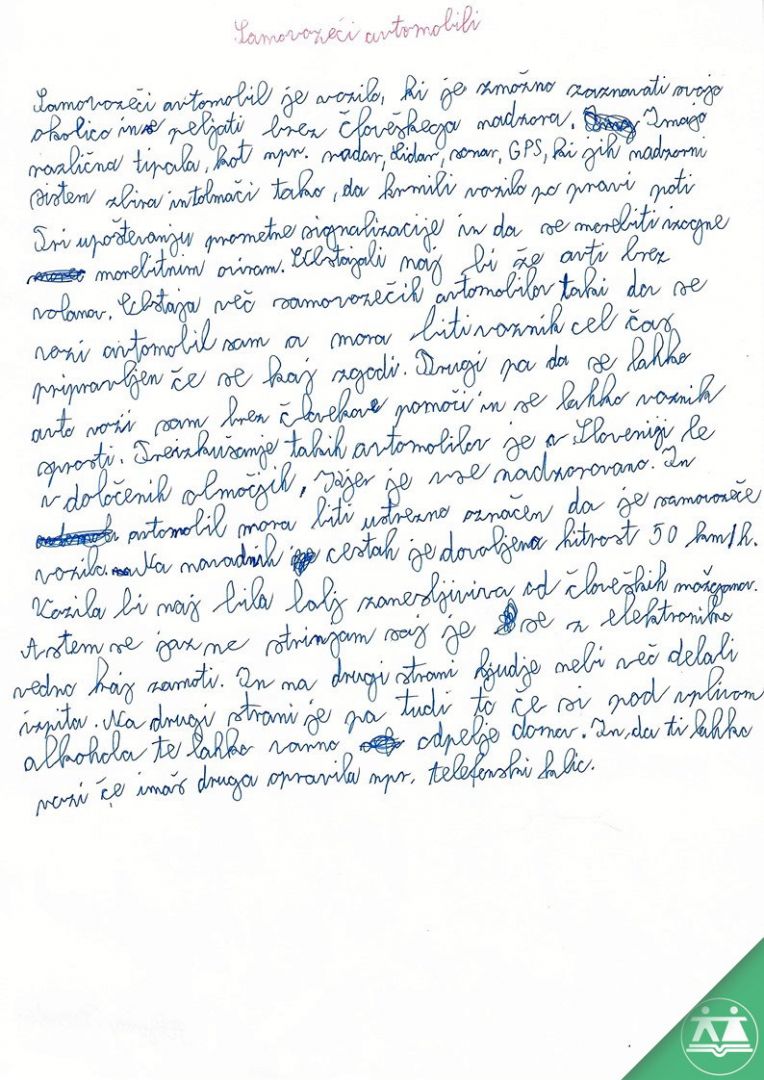 Samovozeči avtomobili
Samovozeči avtomobil je vozilo, ki je zmožno zaznavati svojo
okolico in se peljati brez človeškega nadzora. Imajo
različna tipala, kot npr. radar, Lidar, sonar, GPS, ki jih nadzorni
sistem zbira in tolmači tako, da krmili vozilo po pravi poti
Pri upoštevanju prometne signalizacije in da se morebiti izogne
morebitnim oviram. Obstajali naj bi že avti brez
volanov. Obstaja več samovozečih avtomobilov taki da se
vozi avtomobil sam a mora biti voznik cel čas
pripravljen če se kaj zgodi. Drugi pa da se lahko
avto vozi sam brez človekove pomoči in se lahko voznik
sprosti. Preizkušanje takih avtomobilov je v Sloveniji le
v določenih območjih, kjer je vse nadzorovano. In
avtomobil mora biti ustrezno označen da je samovozeče
vozilo. Na navadnih cestah je dovoljena hitrost 50 km/h.
Vozila bi naj bila bolj zanesljiva od človeških možganov.
A s tem se jaz ne strinjam saj je se z elektroniko
vedno kaj zamoti. In na drugi strani ljudje nebi več delali
izpita. Na drugi strani je pa tudi to če si pod vplivom
alkohola te lahko varno odpelje domov. In, da ti lahko
vozi če imaš druga opravila npr. telefonski klic.